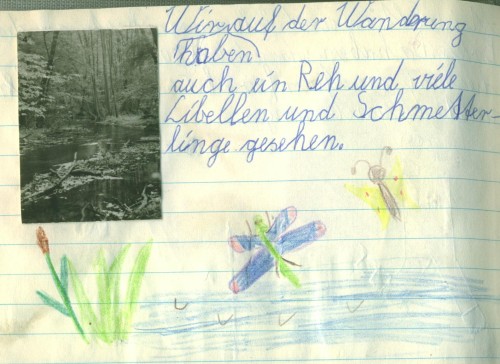 Wir auf der Wandrung
haben
auch ein Reh und viele
Libellen und Schmetter-
linge gesehen.